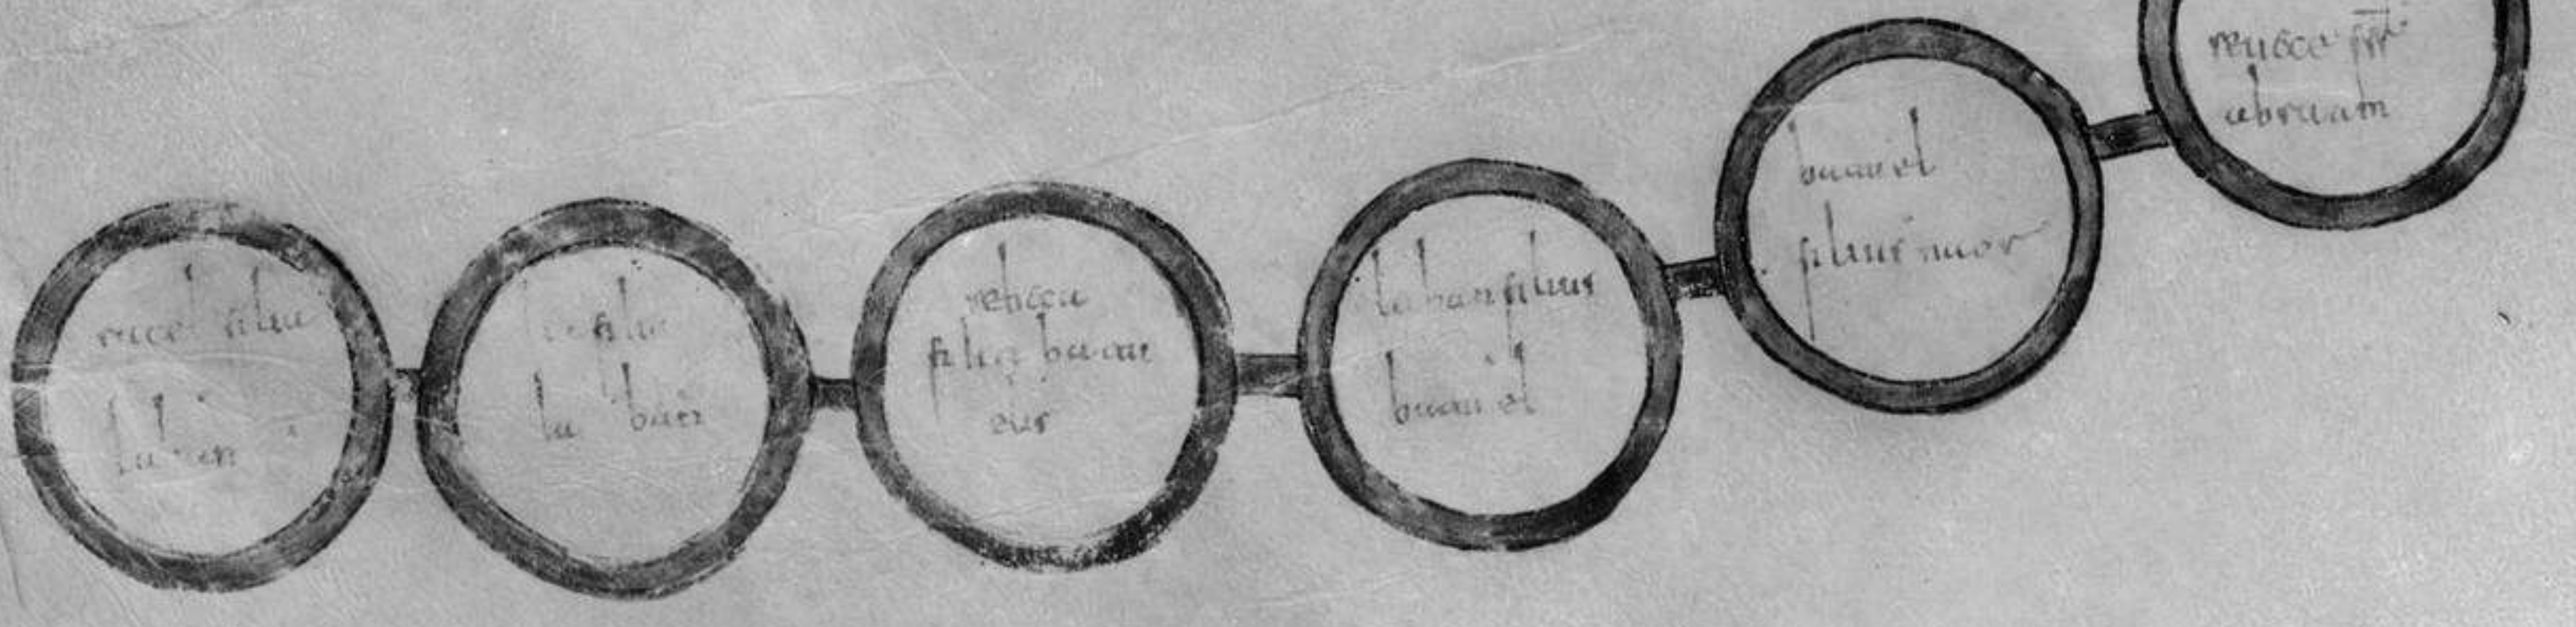 racel filia
laban
lia filia
la ban
rebeca
filia batau
eius
laban filius
batau el
batuel
filius nacor
abraam